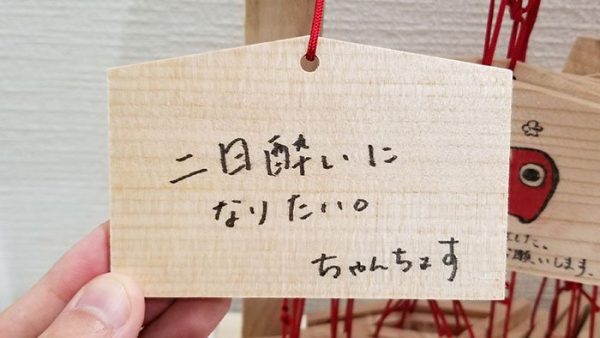 二日酔いに
なりたい。
ちゃんちょす
願いします、